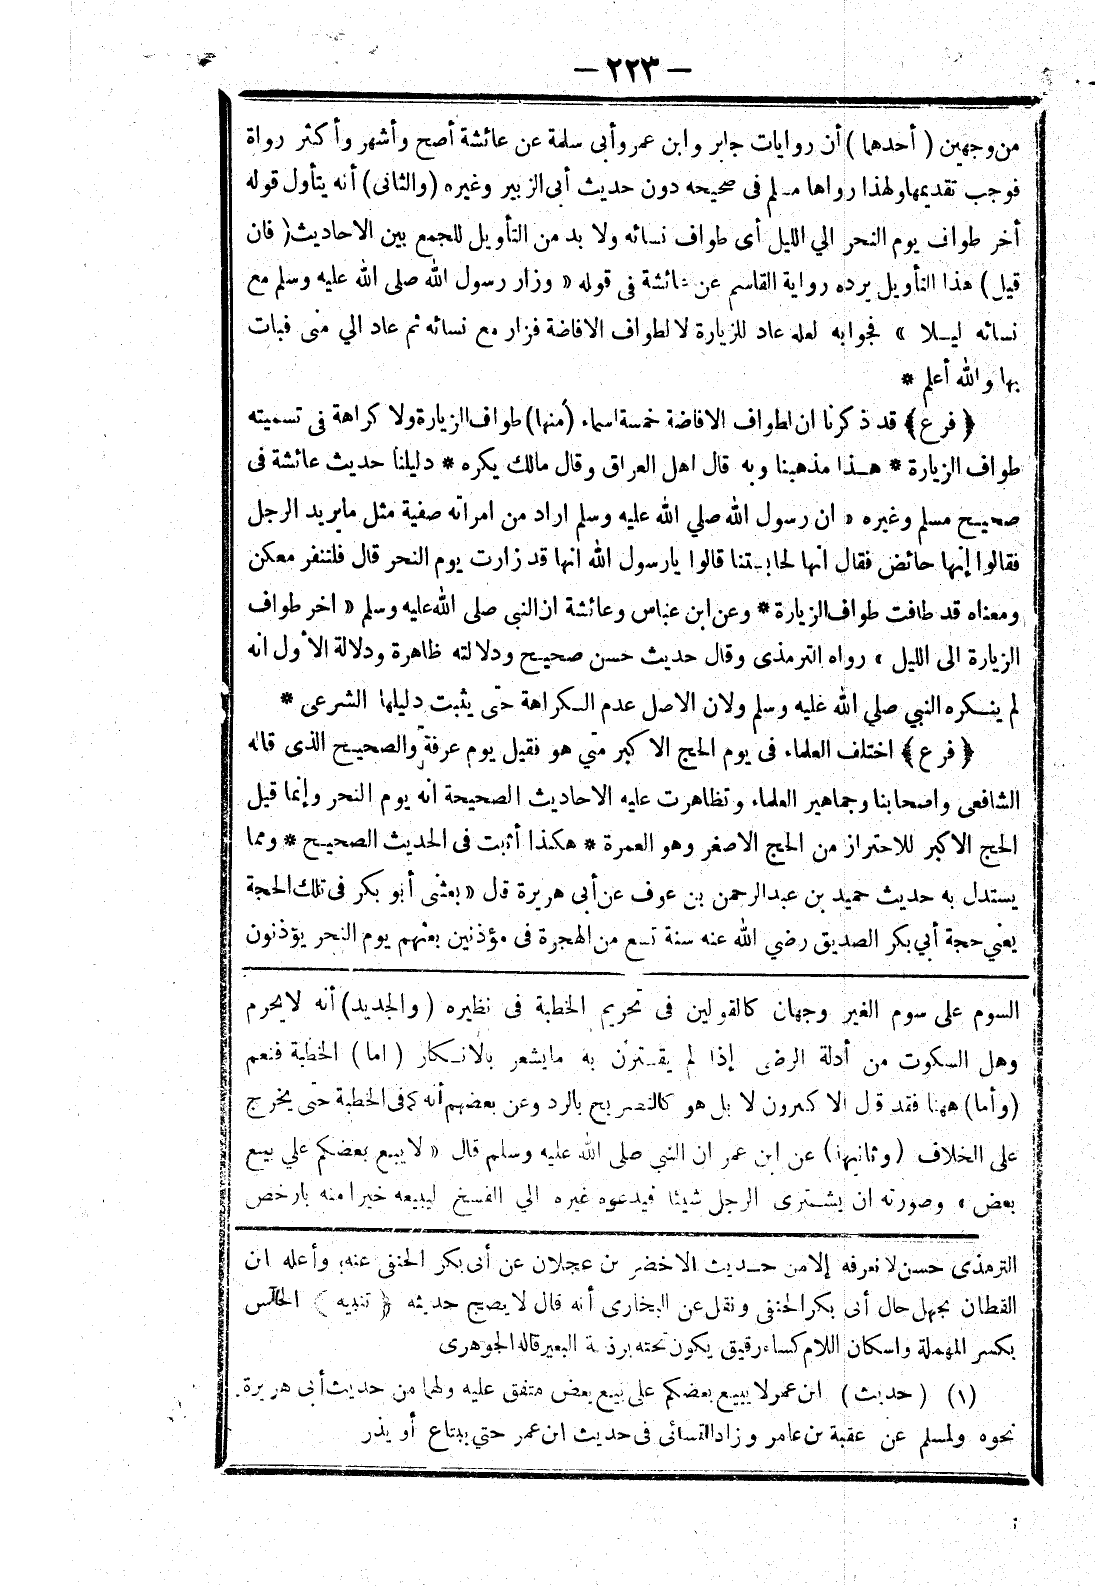 — ٢٢٣ —
من وجهين ( أحدهما ) أن روايات جابر وابن عمر وأبى سلمة عن عائشة أصح وأشهر وأكثر رواة
فوجب تقديمها ولهذا رواها مسلم فى صحيحه دون حديث أبى الزبير وغيره (والثانى) أنه يتأول قوله
أخر طواف يوم النحر الي الليل أى طواف نسائه ولا بد من التأويل للجمع بين الاحاديث ( فان
قيل ) هذا التأويل يرده رواية القاسم عن عائشة فى قوله « وزار رسول الله صلى الله عليه وسلم مع
نسائه ليلا » فجوابه لعله عاد للزيارة لا لطواف الافاضة فزار مع نسائه ثم عاد الي منى فبات
بها والله أعلم *
﴿ فرع ﴾ قد ذكرنا ان لطواف الافاضة خمسة اسماء (منها) طواف الزيارة ولا كراهة فى تسميته
طواف الزيارة * هذا مذهبنا وبه قال اهل العراق وقال مالك يكره * دليلنا حديث عائشة فى
صحيح مسلم وغيره « ان رسول الله صلي الله عليه وسلم اراد من امرأته صفية مثل ما يريد الرجل
فقالوا إنها حائض فقال انها لحابستنا قالوا يارسول الله انها قد زارت يوم النحر قال فلتنفر معكن
ومعناه قد طافت طواف الزيارة * وعن ابن عباس وعائشة ان النبى صلى الله عليه وسلم « اخر طواف
الزيارة الى الليل » رواه الترمذى وقال حديث حسن صحيح ودلالته ظاهرة ودلالة الأول انه
لم ينكره النبي صلي الله عليه وسلم ولان الاصل عدم الكراهة حتى يثبت دليلها الشرعى *
﴿ فرع ﴾ اختلف العلماء فى يوم الحج الاكبر متي هو فقيل يوم عرفة والصحيح الذى قاله
الشافعى واصحابنا وجماهير العلماء وتظاهرت عليه الاحاديث الصحيحة انه يوم النحر وإنما قيل
الحج الاكبر للاحتراز من الحج الاصغر وهو العمرة * هكذا أثبت فى الحديث الصحيح * ومما
يستدل به حديث حميد بن عبد الرحمن بن عوف عن أبى هريرة قال « بعثنى أبو بكر فى تلك الحجة
يعني حجة أبي بكر الصديق رضي الله عنه سنة تسع من الهجرة فى مؤذنين بعثهم يوم النحر يؤذنون
السوم على سوم الغير وجهان كالقولين فى تحريم الخطبة فى نظيره ( والجديد ) أنه لا يحرم
وهل السكوت من أدلة الرضى إذا لم يقترن به مايشعر بالانكار ( اما ) الخطبة فنعم
(وأما) ههنا فقد قال الاكثرون لا بل هو كالتصريح بالرد وعن بعضهم أنه كما فى الخطبة حتى يخرج
على الخلاف ( وثانيها ) عن ابن عمر ان النبي صلى الله عليه وسلم قال « لا يبيع بعضكم علي بيع
بعض » وصورته ان يشترى الرجل شيئا فيدعوه غيره الي الفسخ ليبيعه خيرا منه بارخص
الترمذى حسن لا نعرفه إلا من حديث الاخضر بن عجلان عن أبى بكر الحنفى عنه، وأعله ابن
القطان بجهل حال أبى بكر الحنفى ونقل عن البخارى أنه قال لا يصح حديثه ﴿ تنبيه ﴾ الحلس
بكسر المهملة واسكان اللام كساء رقيق يكون تحته برذعة البعير قاله الجوهرى
(١) ( حديث ) ابن عمر لا يبيع بعضكم على بيع بعض متفق عليه ولهما من حديث أبى هريرة
نحوه ولمسلم عن عقبة بن عامر وزاد النسائى فى حديث ابن عمر حتي يبتاع أو يذر